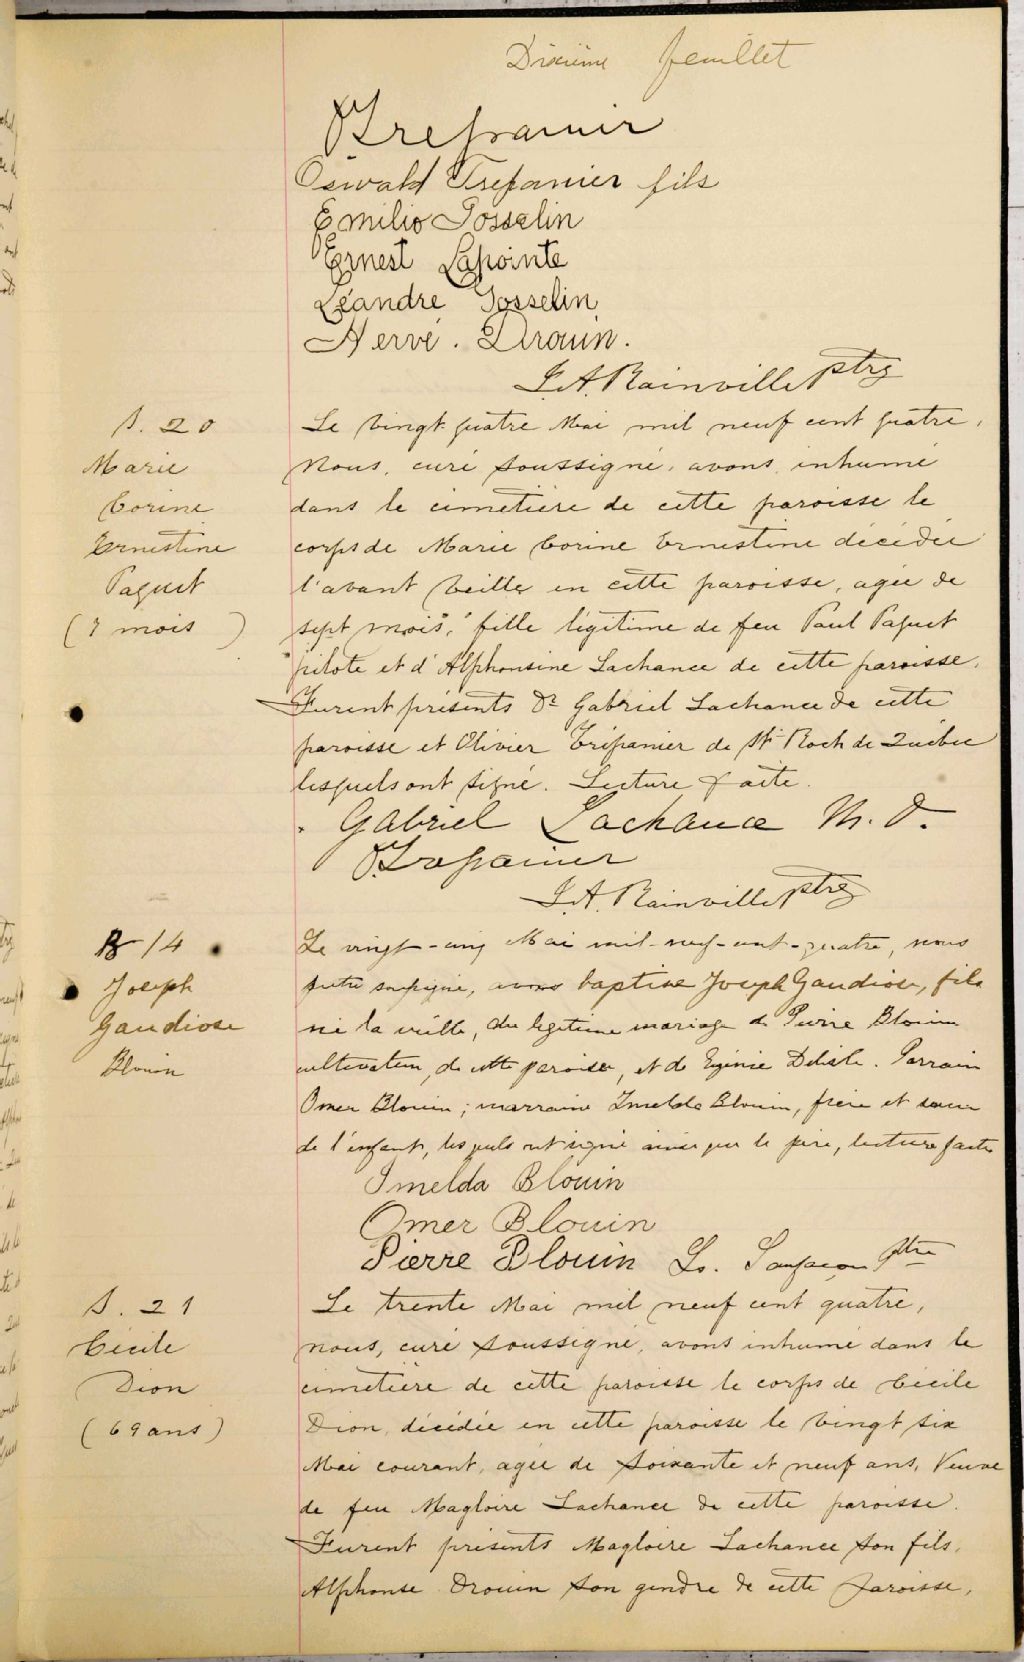 Dixième feuillet
O Trepanier
Oswald Trepanier fils
Emilio Gosselin
Ernest Lapointe
Léandre Gosselin
Hervé. Drouin.
J. A. Rainville ptre
S. 20
Marie
Corine
Ernestine
Paquet
(7 mois)
Le vingt quatre Mai mil neuf cent quatre,
Nous, curé soussigné, avons inhumé
dans le cimetière de cette paroisse le
corps de Marie Corine Ernestine décédée
l'avant veille en cette paroisse, agée de
sept mois, fille légitime de feu Paul Paquet
pilote et d'Alphonsine Lachance de cette paroisse.
Furent présents Dr Gabriel Lachance de cette
paroisse et Olivier Trépanier de St Roch de Québec
lesquels ont signé. Lecture faite.
Gabriel Lachance M.D.
O Trepanier
J. A. Rainville ptre
B 14
Joseph
Gaudiose
Blouin
Le vingt-cinq Mai mil-neuf-cent-quatre, nous
prêtre soussigné, avons baptisé Joseph Gaudiose, fils
né la veille, du légitime mariage de Pierre Blouin
cultivateur, de cette paroisse, et de Exénie Delisle. Parrain
Omer Blouin; marraine Imelda Blouin, frère et soeur
de l'enfant, lesquels ont signé ainsi que le père, lecture faite
Imelda Blouin
Omer Blouin
Pierre Blouin Ls. Sanfaçon Ptre
S. 21
Cécile
Dion
(69 ans)
Le trente Mai mil neuf cent quatre,
nous, curé soussigné, avons inhumé dans le
cimetière de cette paroisse le corps de Cécile
Dion, décédée en cette paroisse le vingt six
Mai courant, agée de soixante et neuf ans, Veuve
de feu Magloire Lachance de cette paroisse.
Furent présents Magloire Lachance son fils,
Alphonse Drouin son gendre de cette paroisse,